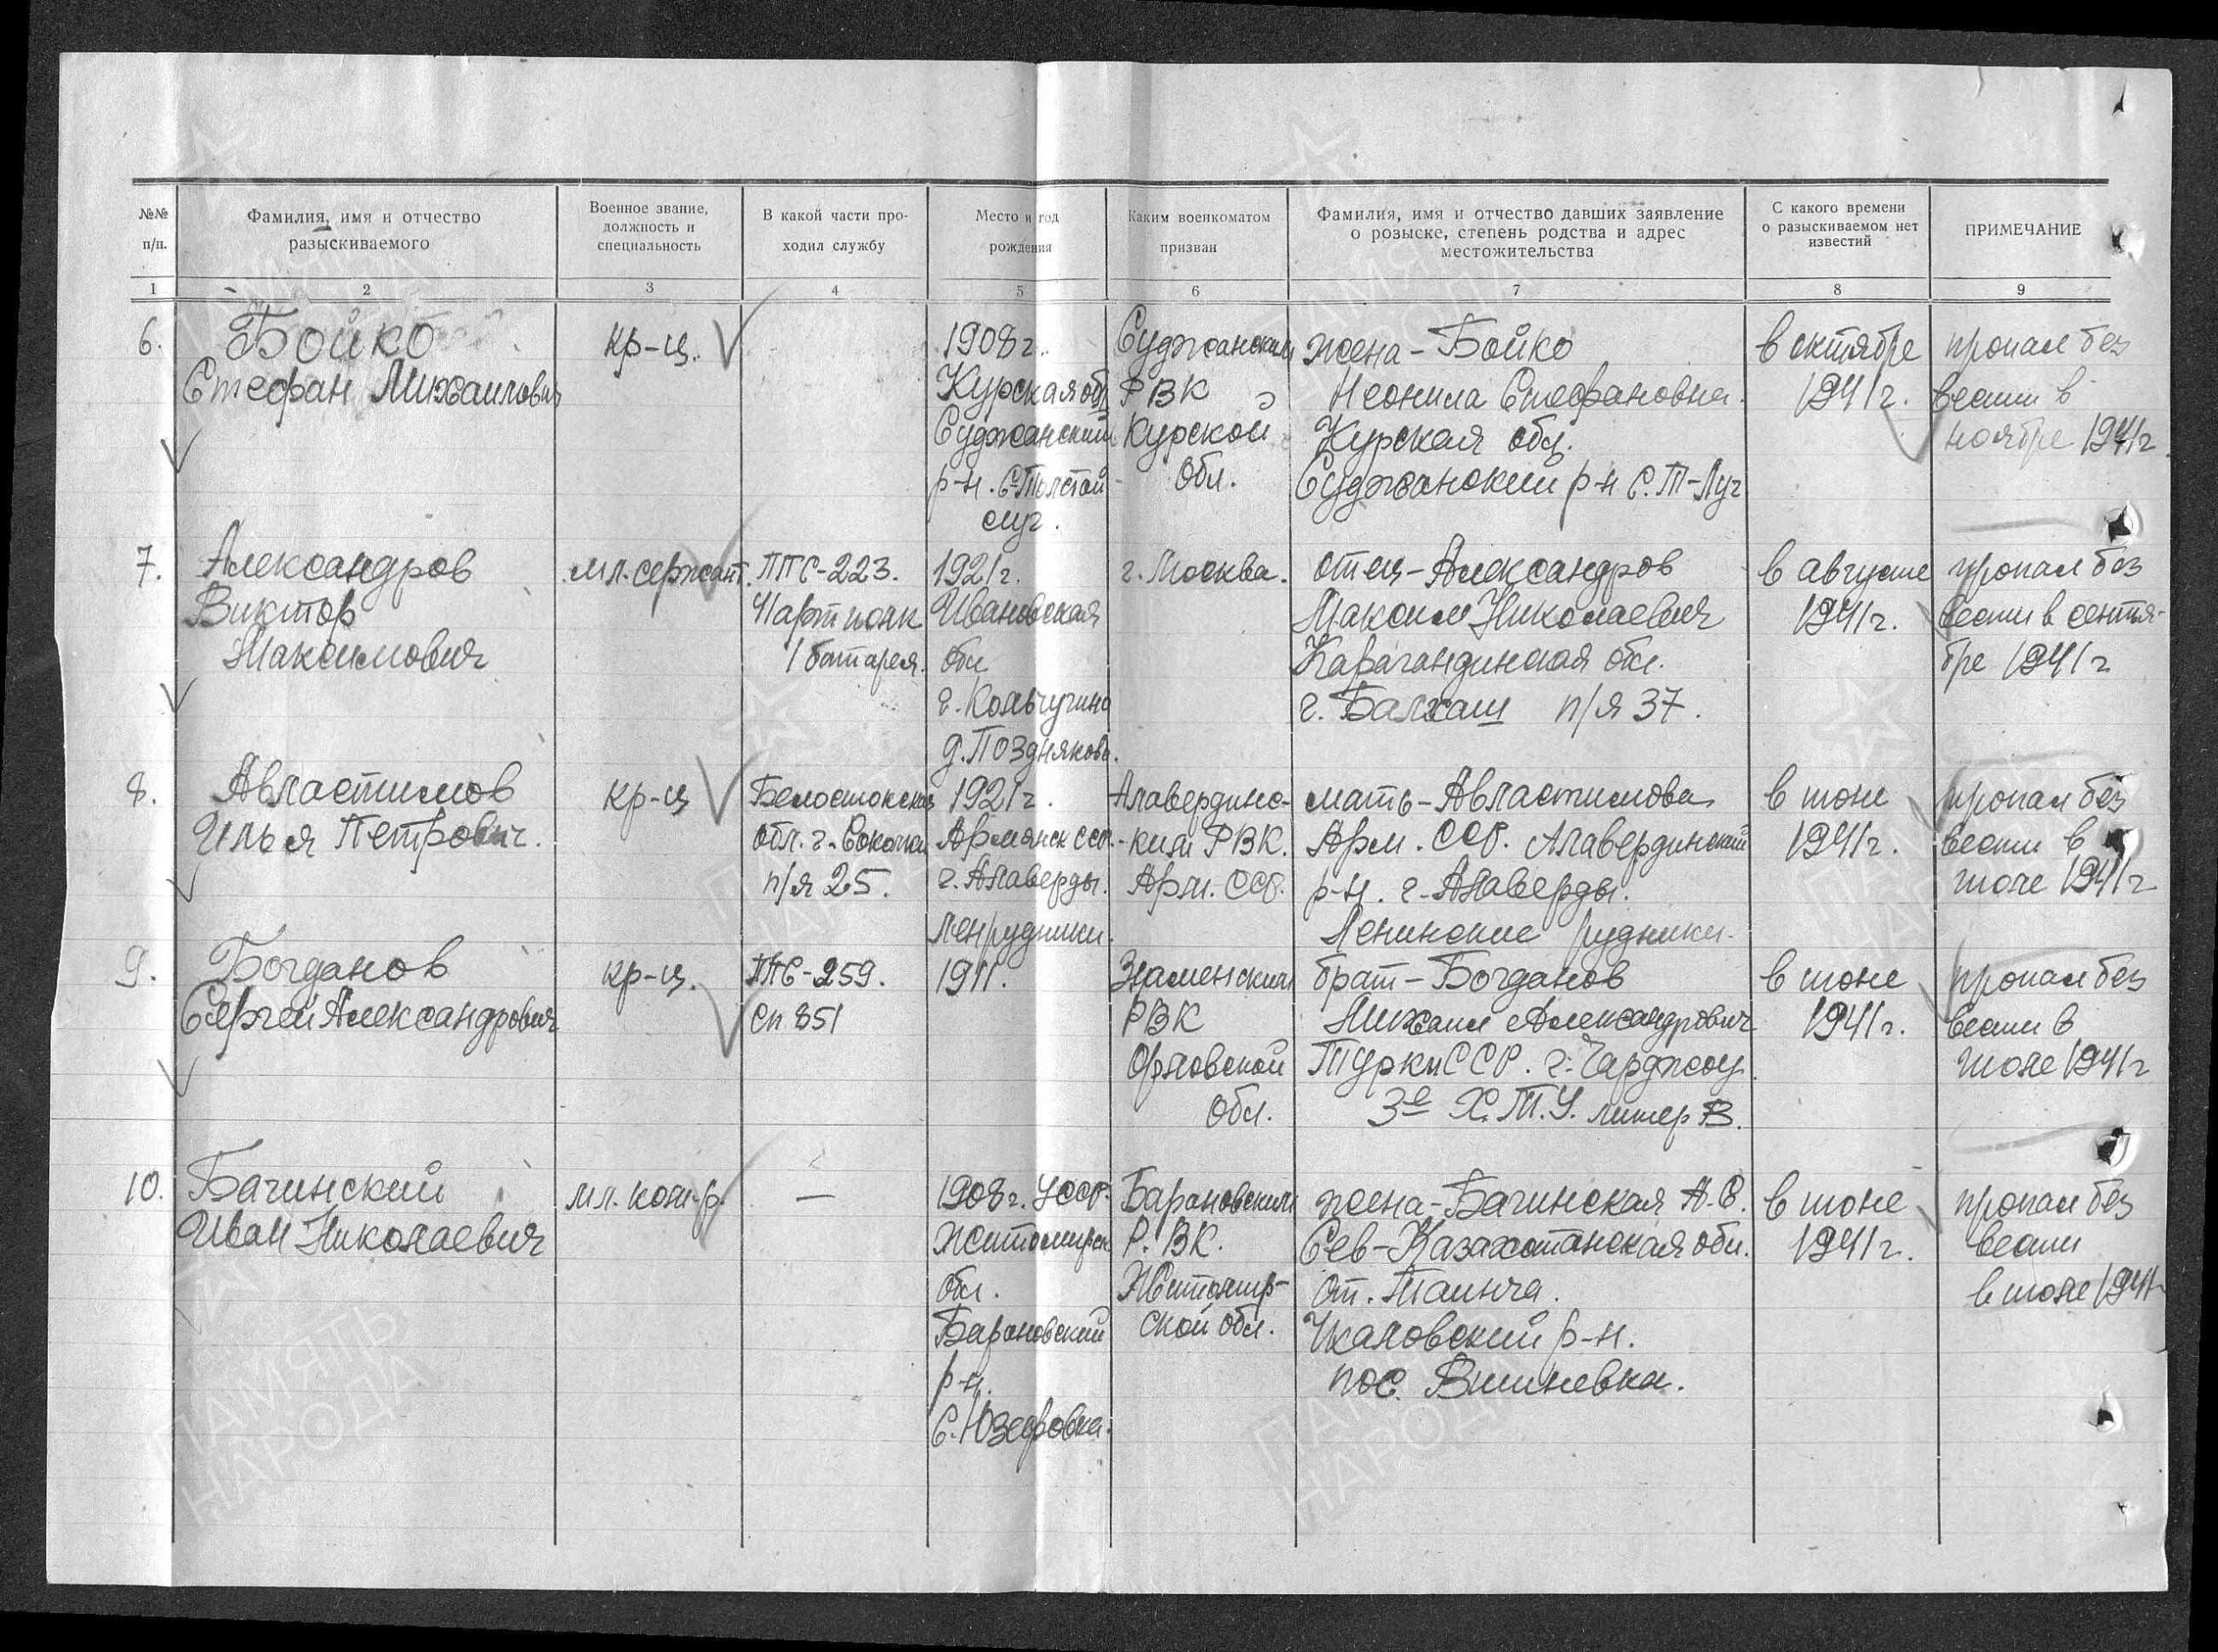 №№ п/п.
Фамилия, имя и отчество разыскиваемого
Военное звание, должность и специальность
В какой части проходил службу
Место и год рождения
Каким военкоматом призван
Фамилия, имя и отчество давших заявление о розыске, степень родства и адрес местожительства
С какого времени о разыскиваемом нет известий
ПРИМЕЧАНИЕ
1 2 3 4 5 6 7 8 9
6.
Бойко
Стефан Михаилович
кр-ц.
1908 г.
Курская обл
Суджанский
р-н. С-Толстой
луг.
Суджанский
РВК
Курской
обл.
жена - Бойко
Неонила Стефановна.
Курская обл.
Суджанский р-н С. Т-Луг
в октябре
1941 г.
пропал без
вести в
ноябре 1941 г.
7.
Александров
Виктор
Максимович
мл. сержант.
ППС-223.
Ч артполк
1 батарея.
1921 г.
Ивановская
обл
г. Кольчугино
д. Поздняково.
г. Москва.
отец - Александров
Максим Николаевич
Карагандинская обл.
г. Балхаш п/я 37.
в августе
1941 г.
пропал без
вести в сентя-
бре 1941 г
8.
Авластимов
Илья Петрович.
кр-ц
Белостокская
обл. г. Соколка
п/я 25.
1921 г.
Армянск ССР.
г. Алаверды.
Ленрудники.
Алавердинс-
кий РВК.
Арм. ССР.
мать - Авластимова
Арм. ССР. Алавердинский
р-н. г. Алаверды.
Ленинские рудники.
в июне
1941 г.
пропал без
вести в
июле 1941 г
9.
Богданов
Сергей Александрович
кр-ц.
ППС-259.
Сп 851
1911.
Знаменский
РВК
Орловской
обл.
брат - Богданов
Михаил Александрович
Туркм ССР. г. Чарджоу
3е Х.Т.У. литер В.
в июне
1941 г.
пропал без
вести в
июле 1941 г
10.
Бачинский
Иван Николаевич
мл. ком-р.
—
1908 г. УССР.
Житомирск
обл.
Барановский
р-н.
С. Юзефовка.
Барановский
Р.ВК.
Житомир-
ской обл.
жена - Бачинская А.В.
Сев-Казахстанская обл.
ст. Таинча.
Чкаловский р-н.
пос. Вишневка.
в июне
1941 г.
пропал без
вести
в июле 1941
ПАМЯТЬ
НАРОДА